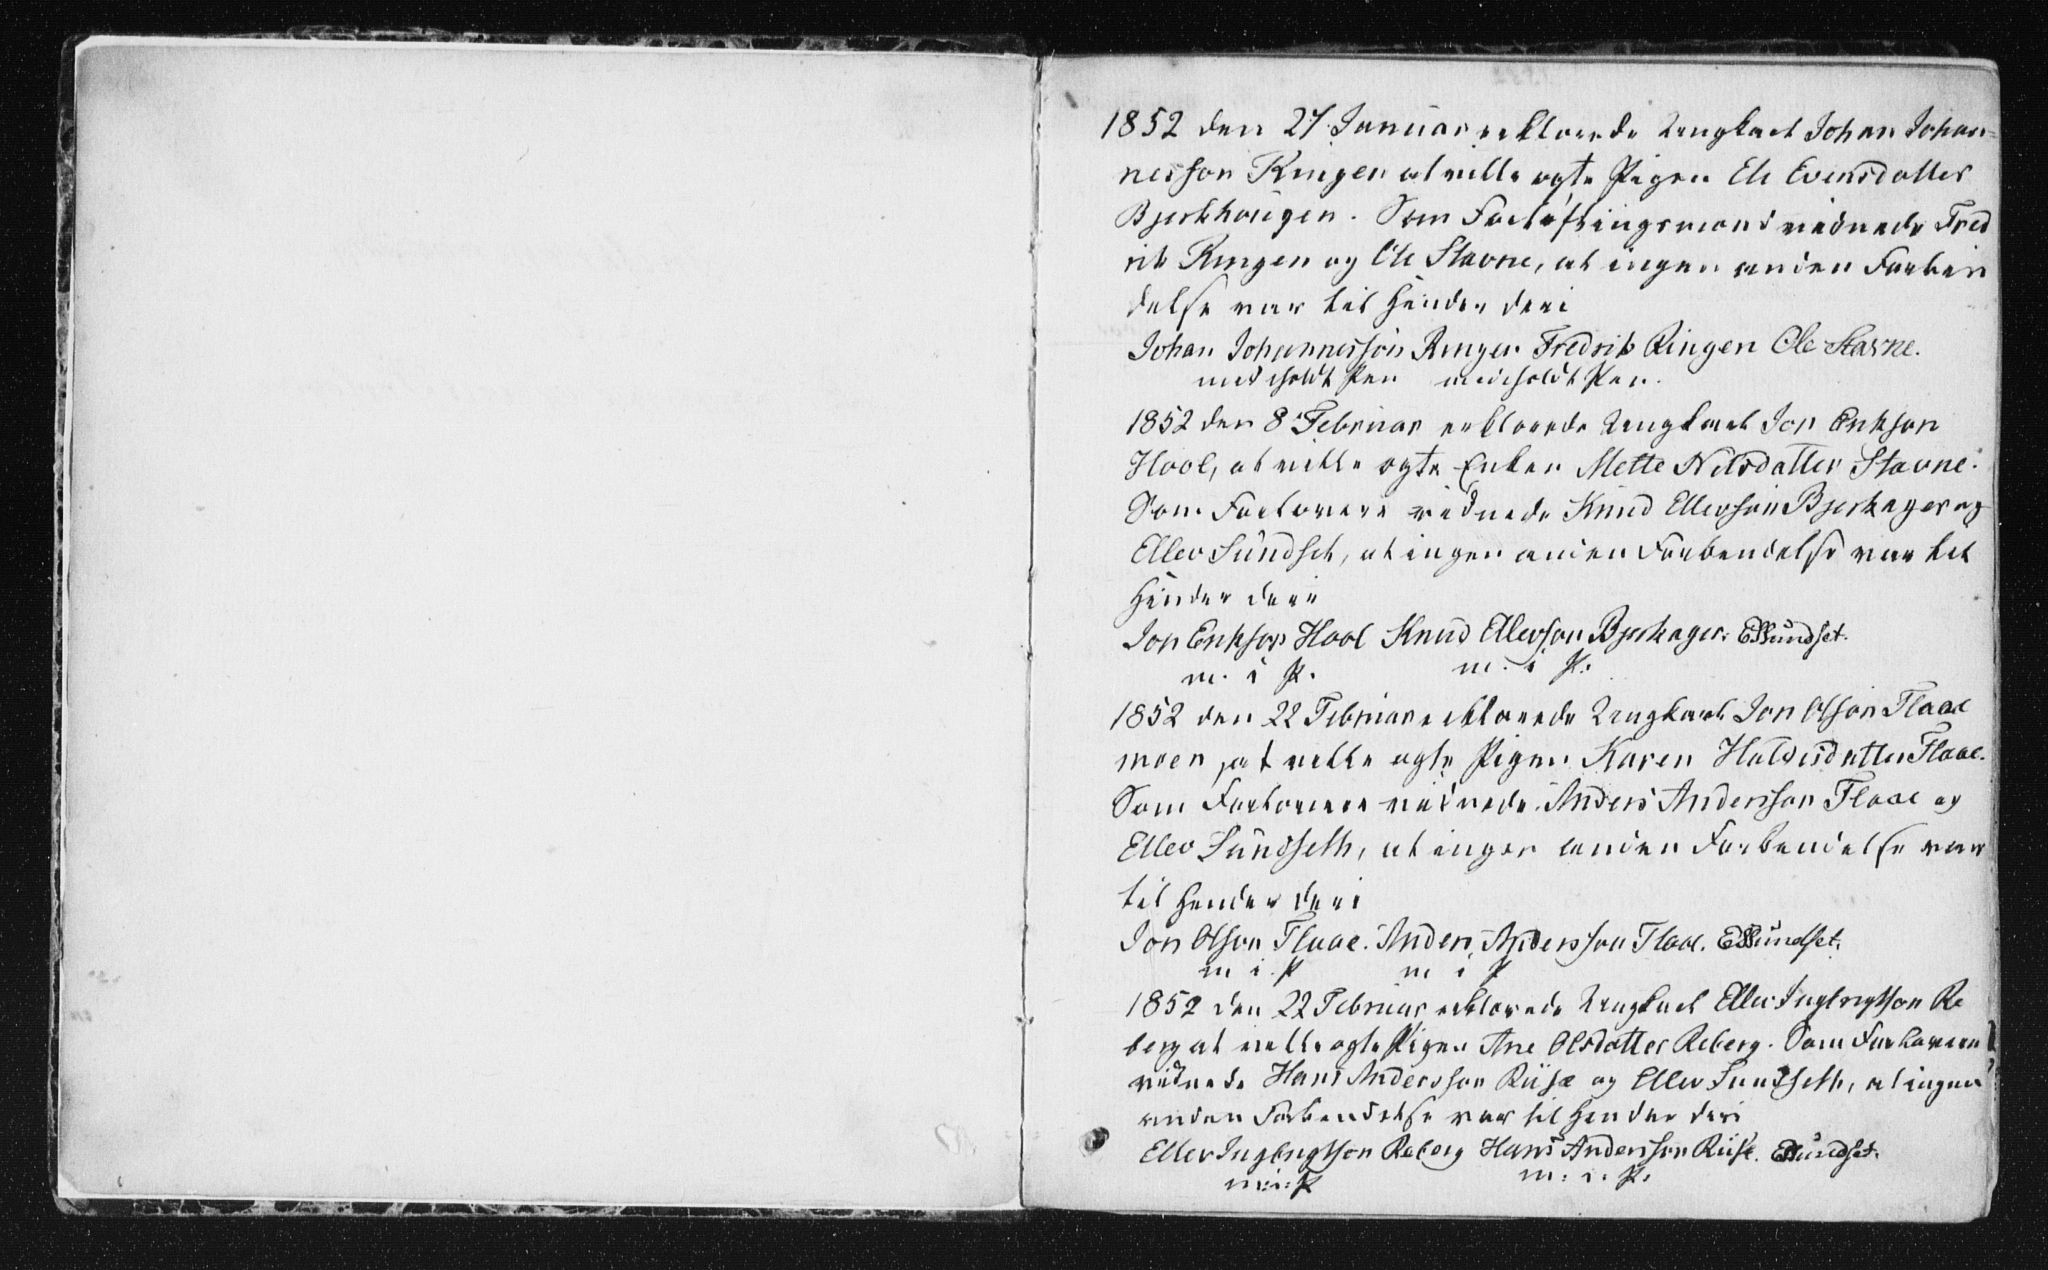 1852 den 27 Januar erklærede Ungkarl Johan Johan-
nesson Ringen at ville ægte Pigen Eli Evensdatter
Bjerkhaugen. Som Forløftningsmænd vidnede Fred
rik Ringen og Ole Stavne, at ingen anden Forbin
delse var til Hinder deri
Johan Johannesson Ringen Fredrik Ringen Ole Stavne.
med iholdt Pen med iholdt Pen.
1852 den 8 Februar erklærede Ungkarl Jon Erikson
Hool, at ville ægte Enken Mette Nilsdatter Stavne.
Som Forlovere vidnede Knud Ellevson Bjerkager og
Ellev Sundset, at ingen anden Forbindelse var til
Hinder deri
Jon Erikson Hool Knud Ellevson Bjerkager. ESundset.
m. i P. m. i P.
1852 den 22 Februar erklærede Ungkarl Jon Olson Flaae
moen, at ville ægte Pigen Karen Haldosdatter Flaae.
Som Forlovere vidnede Anders Andersson Flaae og
Ellev Sundseth, at ingen anden Forbindelse var
til Hinder deri
Jon Olson Flaae. Anders Andersson Flaae. ESundset.
m i. P m i P
1852 den 22 Februar erklærede Ungkarl Ellev Ingbrigtson Re
berg at ville ægte Pigen Ane Olsdatter Reberg. Som Forlovere
vidnede Hans Andersson Riise og Ellev Sundseth, at ingen
anden Forbindelse var til Hinder deri
Ellev Ingbrigtson Reberg Hans Andersson Riise. ESundset.
m: i: P m: i: P.